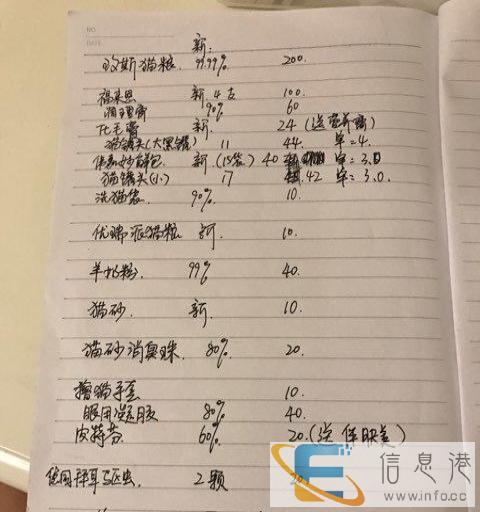 NO
DATE
新.
玫斯猫粮. 99.99% 200.
福来恩 新. 4支 100.
润喵膏 90% 60
化毛膏 新. 24 (送营养膏)
猫罐头(大黑罐) 11 44. 单=4.
新. (15袋) 40 单=3.0
猫罐头(小) 17 42 单=3.0.
洗猫袋 90% 10.
优瑞派猫粮 10.
羊奶粉. 99% 40.
猫砂. 新. 10.
猫砂消臭珠. 80% 20.
撸猫手套 10.
眼用凝胶 80% 40.
皮特芬 60% 20.(送 )
德国拜耳驱虫. 2颗 20.
信息港
www.inffo.cc